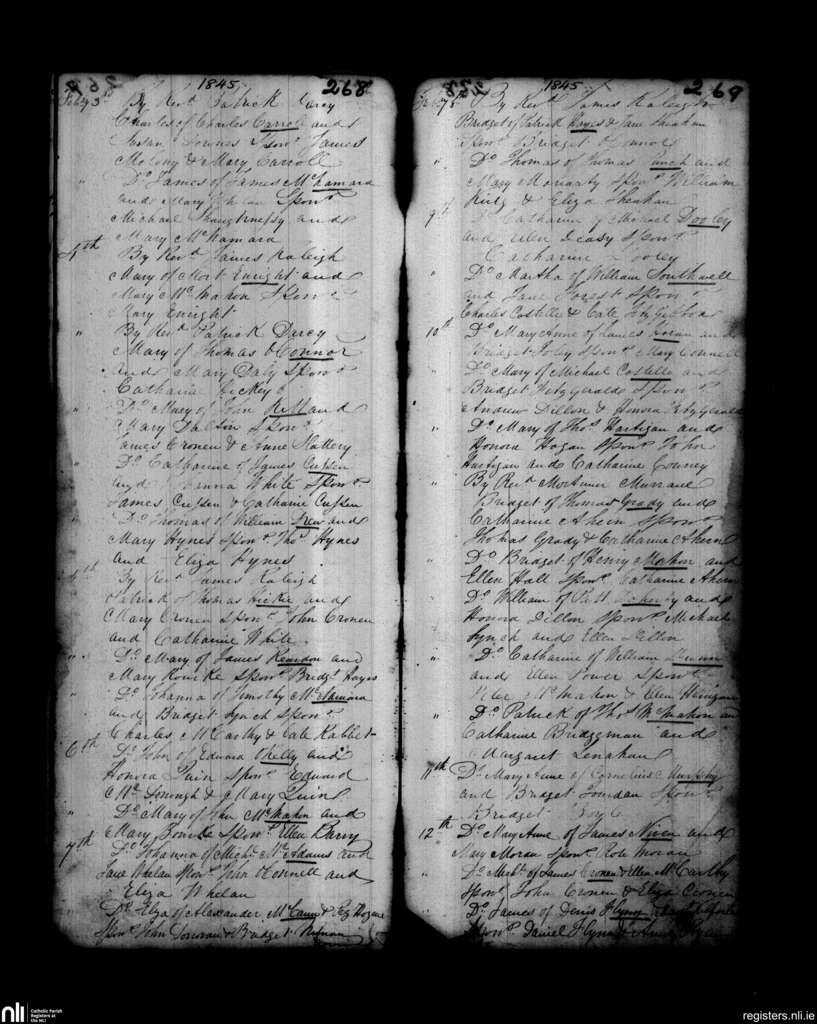 1845 268
Feby 3rd By Revd Patrick Darcy
Charles of Charles Carroll and
Susan Downes Sponrs James
Molony & Mary Carroll
" Do James of James McNamara
and Mary Sponrs
Michael Shaughnessy and
Mary McNamara
By Revd James Raleigh
Mary of Mort Enright and
Mary McMahon Sponr
Mary Enright
" By Revd Patrick Darcy
Mary of Thomas OConnor
and Mary Daly Sponr
Catharine Hickey
" Do Mary of John and
Mary Sponrs
James Cronen & Anne Slattery
Do Catharine of James Cussen
and White Sponrs
James Cussen & Catharine Cussen
" Do Thomas of William and
Mary Hynes Sponrs Thos Hynes
and Eliza Hynes
By Revd James Raleigh
Patrick of Thomas Hickie and
Mary Cronen Sponrs John Cronen
and Catharine White
" Do Mary of James Reardon and
Mary Sponr Bridgt Hayes
" Do Johanna of Timothy McNamara
and Bridget Lynch Sponrs
Charles McCarthy & Cate Rabbet
6th Do John of Edward OKelly and
Honora Quin Sponrs Edward
& Mary Quin
" Do Mary of John McMahon and
Mary Sponr Ellen Barry
7th Do Johanna of Michl McAdams and
Jane Whelan Sponrs John OConnell and
Eliza Whelan
Do Eliza of Alexander McCann &
Sponrs John Donovan & Bridget
1845 269
Feby By Revd James Raleigh
Bridget of Patrick Hayes & Jane Sheahan
Sponr Bridget OConnor
" Do Thomas of Thomas Lynch and
Mary Moriarty Sponrs William
& Eliza Sheahan
9th Do Catharine of Michael Dooley
and Ellen Sponr
Catharine Dooley
" Do Martha of William Southwell
and Jane Forest Sponrs
Charles Costelloe & Cate FitzGibbon
10th Do Mary Anne of James and
Bridget Foley Sponr Mary Connell
" Do Mary of Michael Costello and
Bridget FitzGerald Sponrs
Andrew Dillon & Honora FitzGerald
" Do Mary of Thos Hartigan and
Honora Hogan Sponrs John
Hartigan and Catharine Conrey
" By Revd Mortimer
Bridget of Thomas Grady and
Catharine Ahern Sponrs
Thomas Grady & Catharine Ahern
" Do Bridget of Henry Mahon and
Ellen Hall Sponr Catharine Ahern
" Do William of Patt and
Honora Dillon Sponrs Michael
Lynch and Ellen Dillon
" Do Catharine of William
and Ellen Power Sponrs
Peter McMahon & Ellen
" Do Patrick of Thos McMahon and
Catharine Bridgeman and
Margaret Lenahan
11th Do Mary Anne of Cornelius Murphy
and Bridget Jourdan Sponr
Bridget Boyle
12th Do Mary Anne of James Niven and
Mary Moran Sponr Rose Moran
" Do Michl of James Cronen & Ellen McCarthy
Sponrs John Cronen & Eliza Cronen
Do James of Denis Flynn
Sponrs Daniel Flynn & Anne Ryan
nli
Catholic Parish
Registers at
the NLI
registers.nli.ie